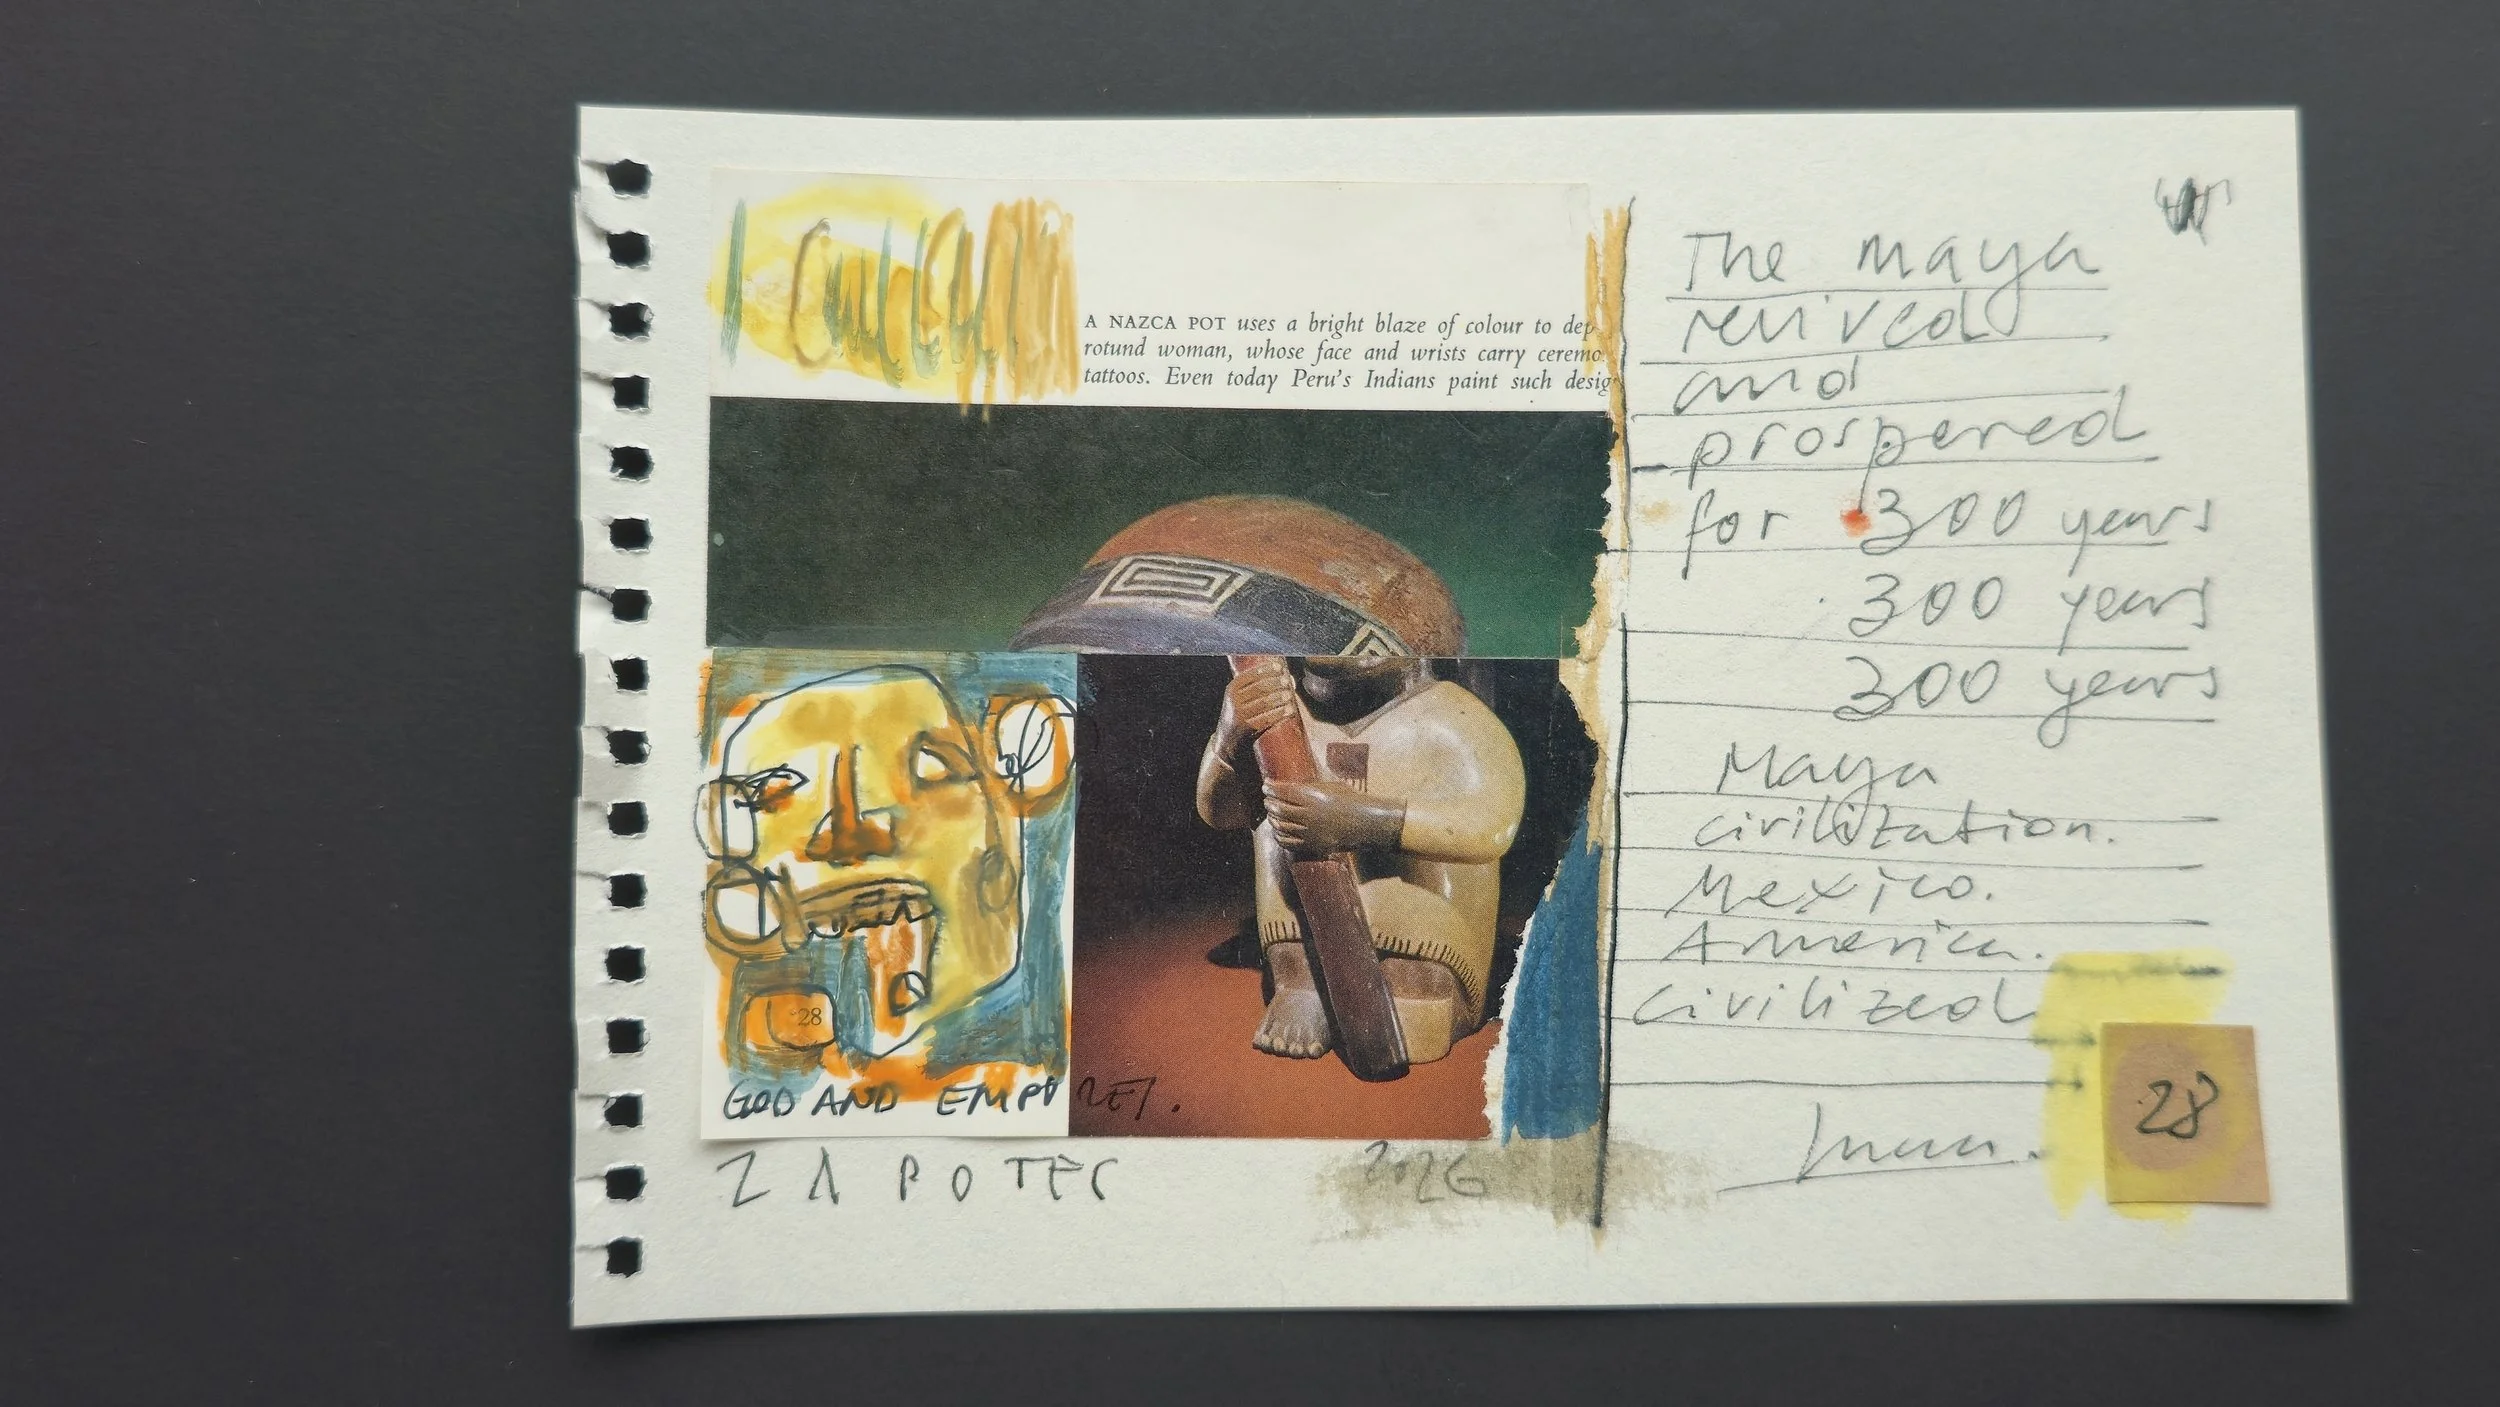 A NAZCA POT uses a bright blaze of colour to dep
rotund woman, whose face and wrists carry ceremo
tattoos. Even today Peru's Indians paint such desig
28
GOD AND EMPIRE
ZAPOTEC
2026
The Maya
revived
and
prospered
for 300 years
300 years
300 years
Maya
civilization.
Mexico.
America.
civilized
28